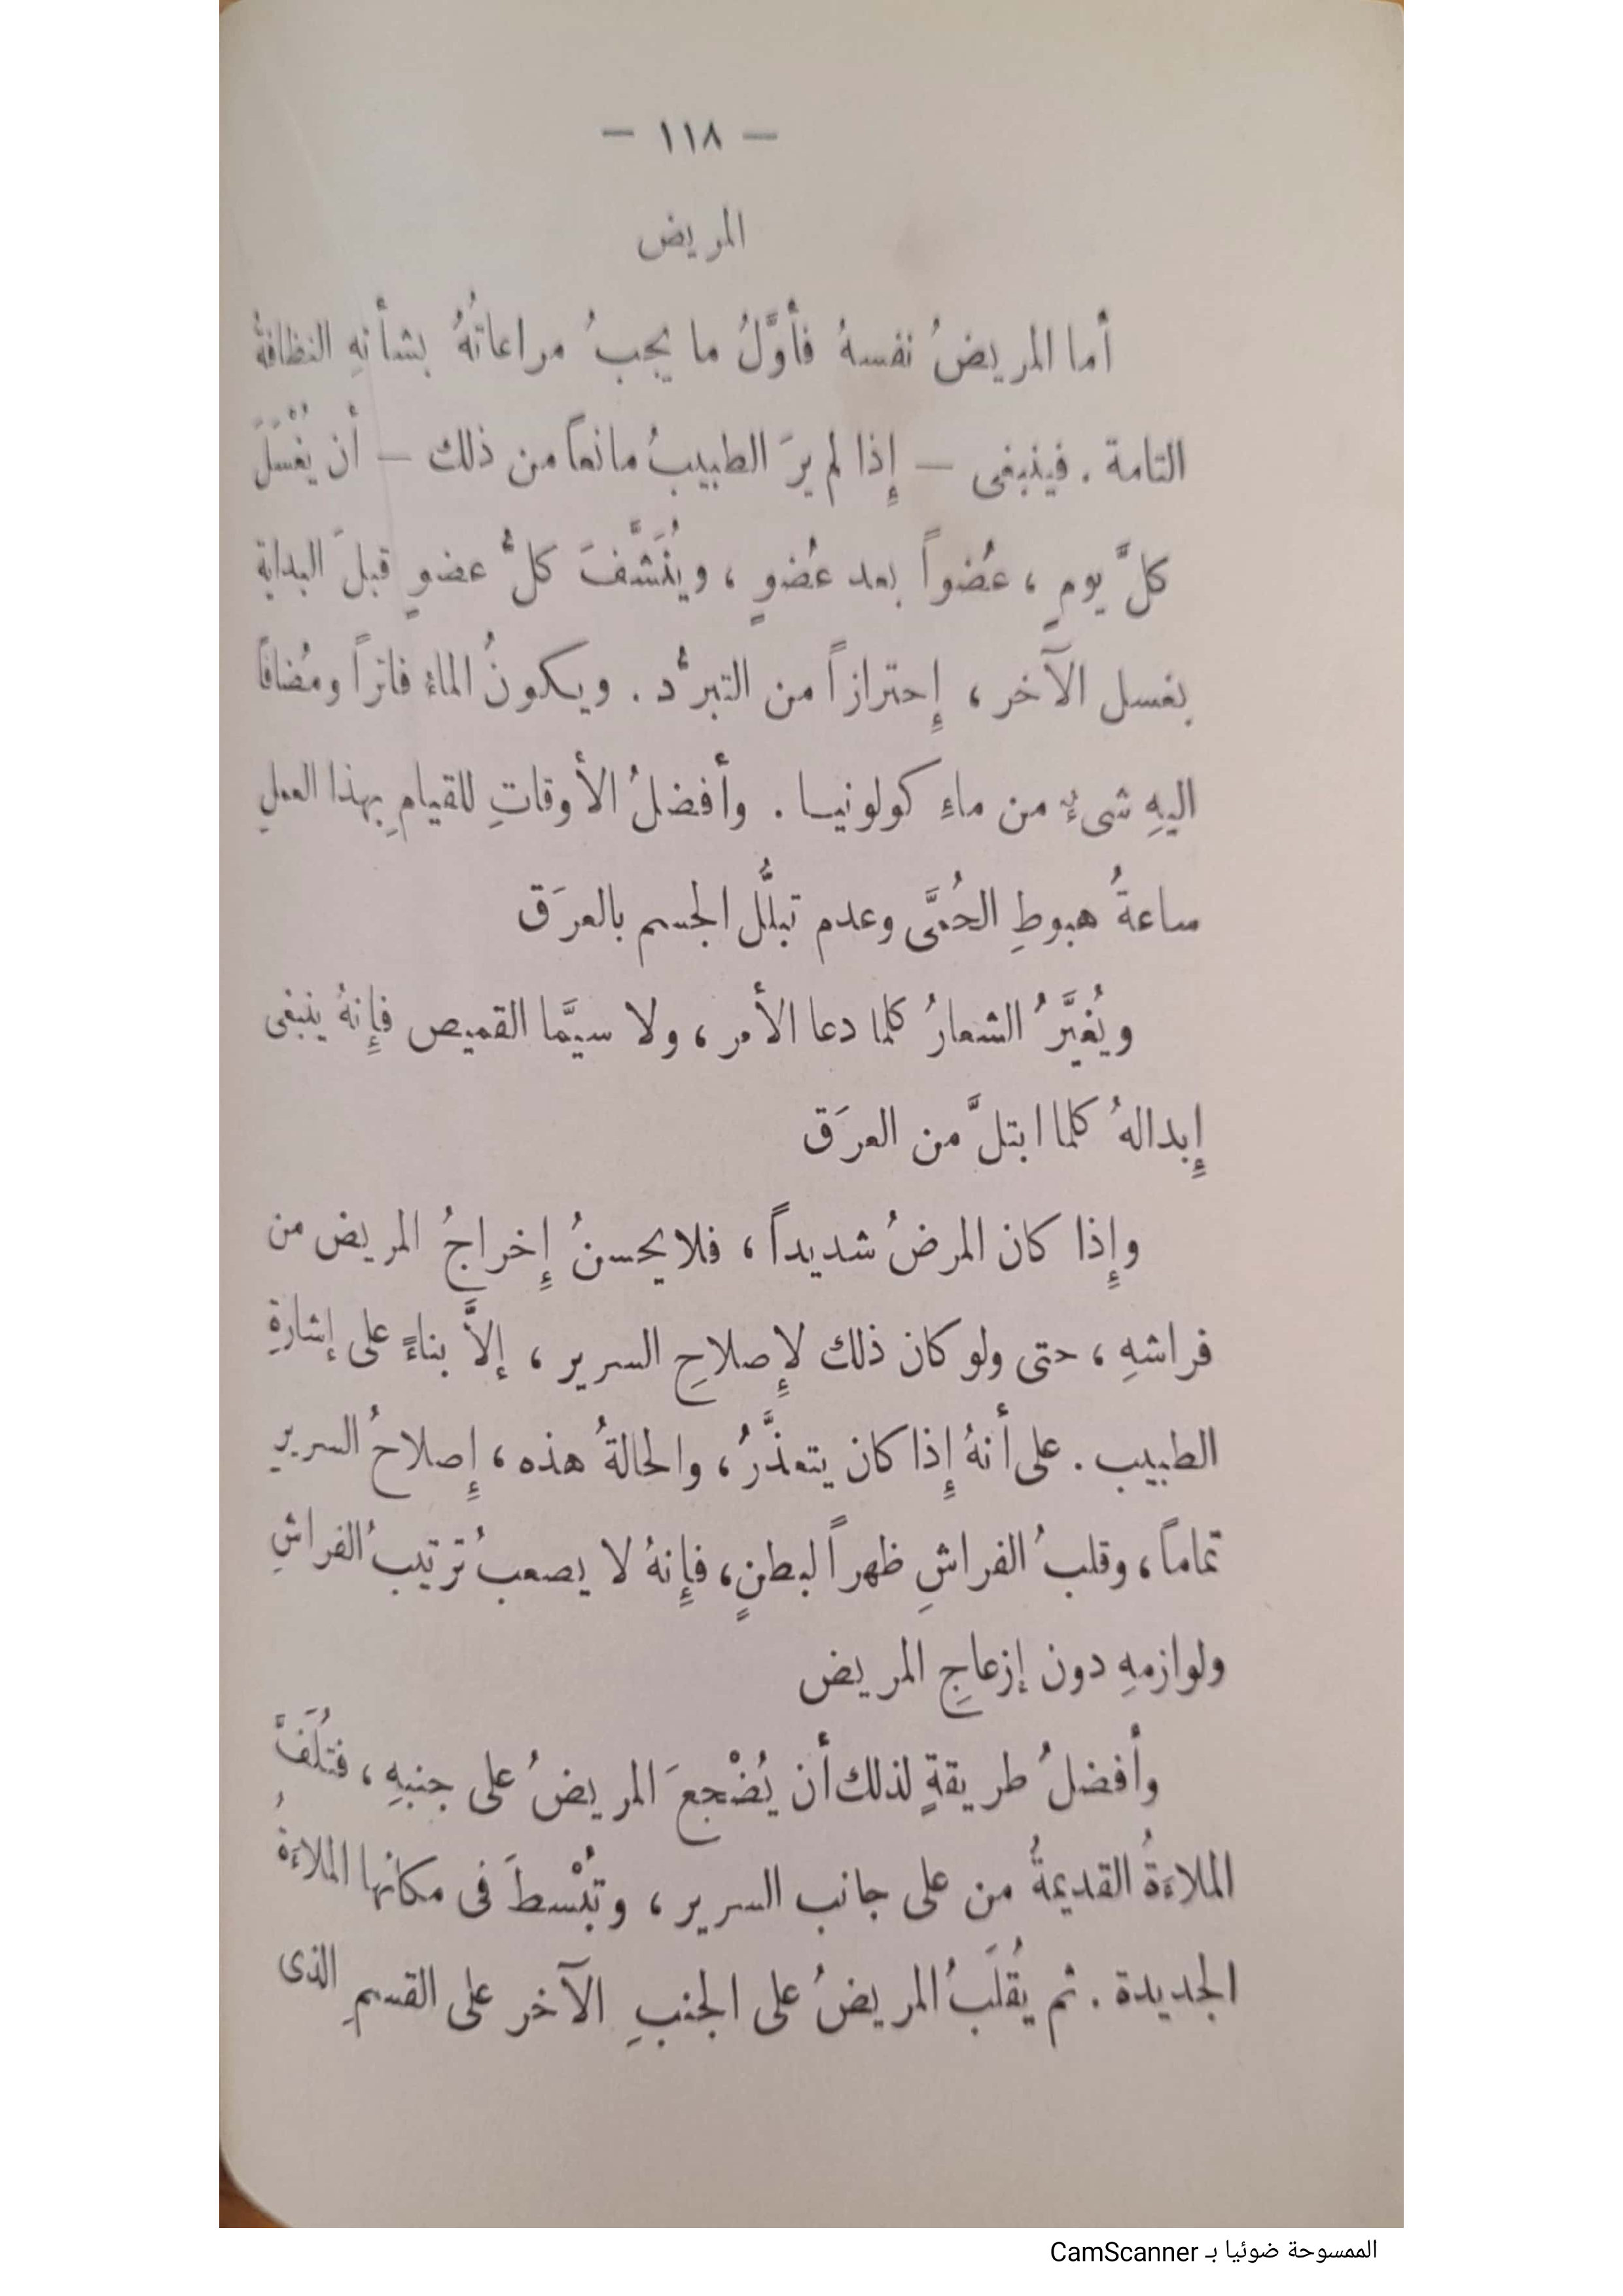 — ١١٨ —
المريض
أما المريضُ نفسهُ فأوَّلُ ما يجبُ مراعاتُهُ بشأنهِ النظافةُ
التامة . فينبغى — إِذا لم يرَ الطبيبُ مانعاً من ذلك — أن يُغْسَلَ
كلَّ يومٍ ، عُضواً بعد عُضوٍ ، ويُنَشَّفَ كلُّ عضوٍ قبلَ البداية
بغسل الآخر ، إِحترازاً من التبرُّد . ويكونُ الماءُ فاتراً ومُضافاً
اليهِ شىءٌ من ماءِ كولونيا . وأفضلُ الأوقاتِ للقيامِ بهذا العملِ
ساعةُ هبوطِ الحُمَّى وعدم تبلُّل الجسم بالعرَق
ويُغيَّرُ الشعارُ كلما دعا الأمر ، ولا سيَّما القميص فإِنهُ ينبغى
إِبدالهُ كلما ابتلَّ من العرَق
وإِذا كان المرضُ شديداً ، فلا يحسنُ إِخراجُ المريض من
فراشهِ ، حتى ولو كان ذلك لإِصلاحِ السرير ، إلاَّ بناءً على إشارةِ
الطبيب . على أنهُ إِذا كان يتعذَّرُ ، والحالةُ هذه ، إِصلاحُ السريرِ
تماماً ، وقلبُ الفراشِ ظهراً لبطنٍ ، فإِنهُ لا يصعبُ ترتيبُ الفراشِ
ولوازمهِ دون إزعاجِ المريض
وأفضلُ طريقةٍ لذلك أن يُضْجعَ المريضُ على جنبهِ ، فتُلَفَّ
الملاءةُ القديمةُ من على جانب السرير ، وتُبْسطَ فى مكانها الملاءةُ
الجديدة . ثم يُقلَبُ المريضُ على الجنبِ الآخر على القسمِ الذى
الممسوحة ضوئيا بـ CamScanner